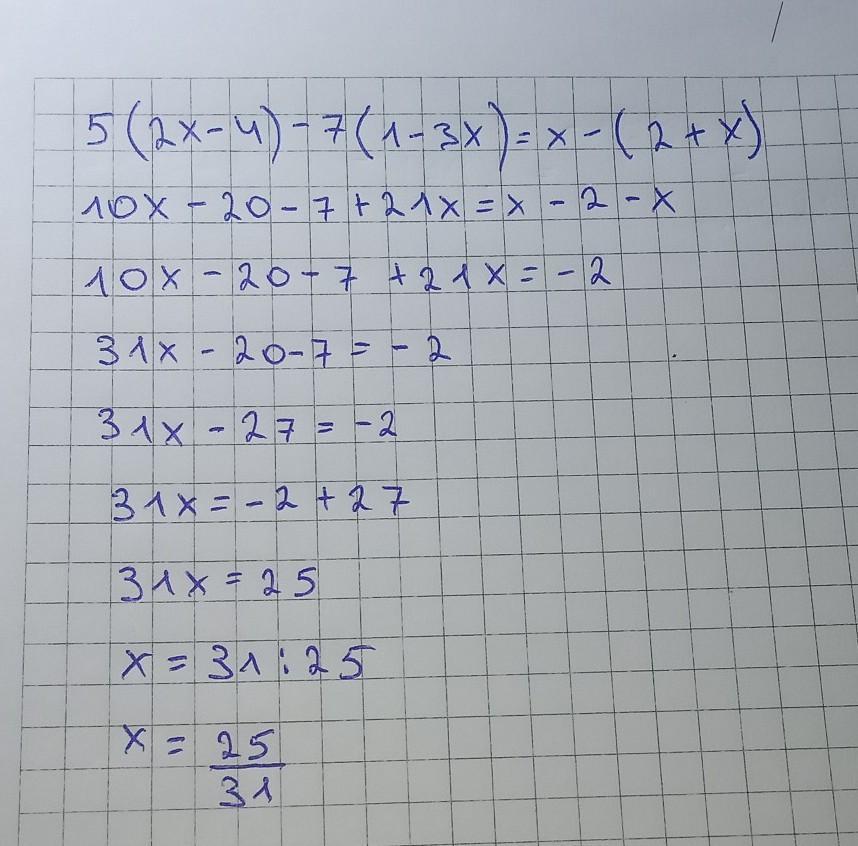 5(2x-4)-7(1-3x)=x-(2+x)
10x-20-7+21x=x-2-x
10x-20-7+21x=-2
31x-20-7=-2
31x-27=-2
31x=-2+27
31x=25
x=31:25
x=25/31